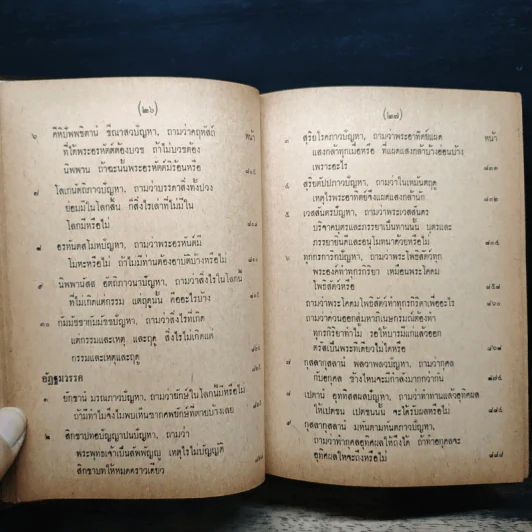 (๒๖)
๖ คิหิปัพพชิตานํ ขีณาสวปัญหา, ถามว่าคฤหัสถ์ หน้า
ที่ได้พระอรหัตต์ต้องบวช ถ้าไม่บวชต้อง
นิพพาน ถ้าฉะนั้นพระอรหัตต์มิร้อนหรือ
๗ โลเกนัตถิภาวปัญหา, ถามว่าบรรดาสิ่งทั้งปวง
ย่อมมีในโลกสิ้น ก็สิ่งไรเล่าที่ไม่มีใน
โลกมีหรือไม่
๘ อรหันตสโมหปัญหา, ถามว่าพระอรหันต์มี
โมหะหรือไม่ ถ้าไม่มีท่านต้องอาบัติบ้างหรือไม่
๙ นิพพานัสส อัตถิภาวนาปัญหา, ถามว่าสิ่งไรในโลกนี้
ที่ไม่เกิดแต่กรรม แต่ฤดูนั้น คืออะไรบ้าง
๑๐ กัมมัชชากัมมัชชปัญหา, ถามว่าสิ่งไรที่เกิด
แต่กรรมและเหตุ และฤดู สิ่งไรไม่เกิดแต่
กรรมและเหตุและฤดู
อัฏฐมวรรค
๑ ยักขานํ มรณภาวปัญหา, ถามว่ายักษ์ในโลกนี้มีหรือไม่
ถ้ามีทำไมจึงไม่พบเห็นซากศพยักษ์ที่ตายบ้างเลย
๒ สิกขาบทอปัญญาปนปัญหา, ถามว่า
พระพุทธเจ้าเป็นสัพพัญญู เหตุไรไม่บัญญัติ
สิกขาบทให้หมดคราวเดียว
(๒๗)
๓ สุริยโรคภาวปัญหา, ถามว่าพระอาทิตย์แผด หน้า
แสงกล้าทุกเมื่อหรือ ที่แผดแสงกล้าบ้างอ่อนบ้าง
เพราะอะไร
๔ สุริยตัปปภาวปัญหา, ถามว่าในเหมันตฤดู
เหตุไรพระอาทิตย์จึงแผดแสงกล้านัก
๕ เวสสันตรปัญหา, ถามว่าพระเวสสันดร
บริจาคบุตรและภรรยาเป็นทานนั้น บุตรและ
ภรรยายินดีและอนุโมทนาด้วยหรือไม่
๖ ทุกกรการิกปัญหา, ถามว่าพระโพธิสัตว์ทุก
พระองค์ทำทุกกิริยา เหมือนพระโคดม
โพธิสัตว์หรือ
ถามว่าพระโคดมโพธิสัตว์ทำทุกรกิริยาเพื่ออะไร
ถามว่าควรออกสู่มหาภิเนษกรมณ์ต้องทำ
ทุกรกิริยาทำไม รอให้บารมีแก่แล้วออก
ตรัสเป็นพระทีเดียวไม่ได้หรือ
๗ กุสลากุสลานํ พลวาพลวปัญหา, ถามว่ากุศล
กับอกุศล ข้างไหนจะมีกำลังมากกว่ากัน
๘ เปตานํ อุททิสสผลปัญหา, ถามว่าทำทานแล้วอุทิศผล
ให้เปตชน เปตชนนั้น จะได้รับผลหรือไม่
๙ กุสลากุสลานํ มหันตามหันตภาวปัญหา,
ถามว่าทำกุศลอุทิศผลให้ถึงได้ ถ้าทำอกุศลจะ
อุทิศผลให้จะถึงหรือไม่